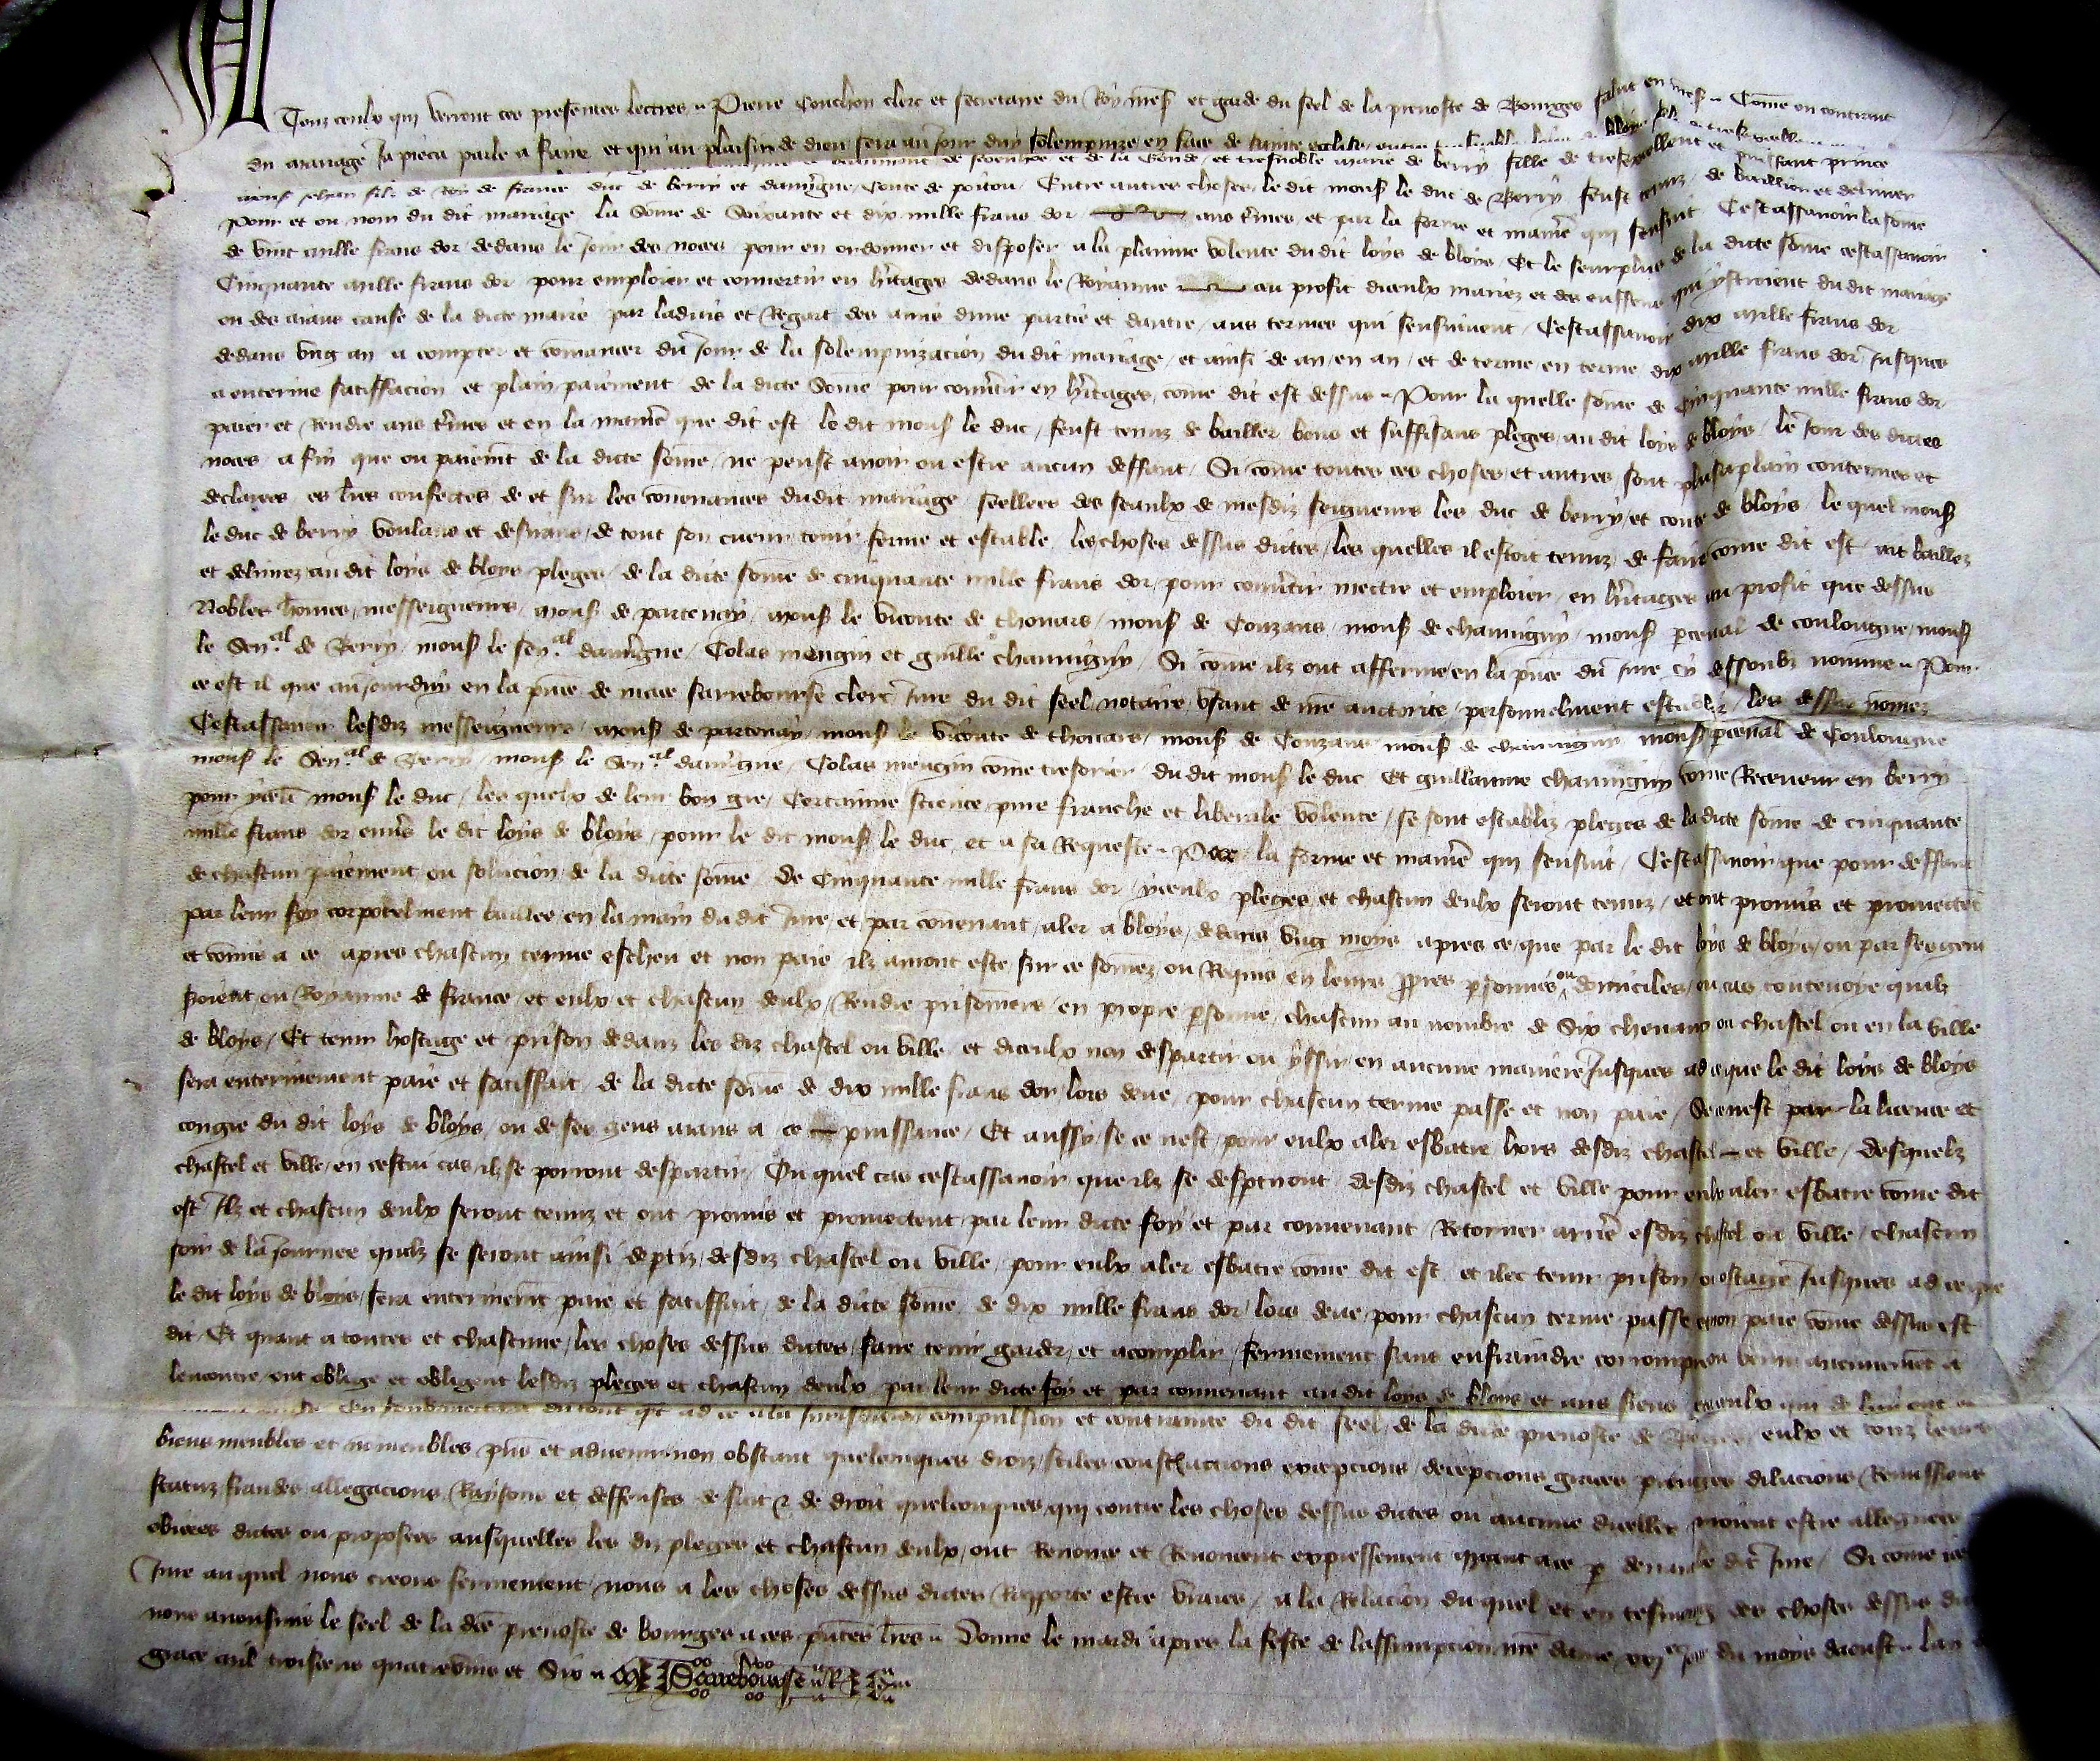 A Touz ceulx qui verront ces presentes lettres Pierre clerc et secretaire du Roy nres et garde du seel de la prevoste de Bourges salut en Come ou contraut
du mariage ja pieca parle a faire et qui au plaisir de dieu sera au jour duy solempnize en face de saincte eglise entre
Jehan filz de Roy de france duc de berry et dauvgne Conte de poitou Entre autres choses le dit mons le duc de Berry feust tenuz de baillier et delivrer
Pour et ou nom du dit mariage la some de Soixante et dix mille frans dor aus tmes et par la forme et manie qui sensuit Cestassavoir la some
de vint mille frans dor dedans le jour des noces pour en ordonner et disposer a la plaine volente du dit loys de bloys Et le seurplus de la dicte some cestassavoir
Cinquante mille frans dor pour emploier et convertir en hitages dedans le Royaume au profit diceulx mariez et des enffens qui ystroient du dit mariage
ou des aians cause de la dicte marie par ladvis et Regart des amis dune partie et dautre aus termes qui sensuivent Cestassavoir dix mille frans dor
dedans ung an a compter et comancer du jour de la solempnizacion du dit mariage et ainsi de an en an et de terme en terme dix mille frans dor jusques
a enterine satiffacion et plain paiement de la dicte Some pour convtir en hitages come dit est dessus Pour la quelle some de Cinquante mille frans dor
paier et Rendre aus tmes et en la manie que dit est le dit mons le duc feust tenuz de bailler bons et suffisans pleges au dit loys de bloys le jour des dictes
noces a fin que ou paiemt de la dicte some ne peust avoir ou estre aucun deffaut Si come toutes ces choses et autres sont plus a plain contenues et
declarees es lres confectes de et sur les covenances du dit mariage seellees des seaulx de mesdiz seigneurs les duc de berry et conte de bloys le quel mons
le duc de berry voulans et desirans de tout son cueur tenir ferme et estable les choses dessus dictes les quelles il estoit tenuz de faire come dit est ait baillez
et delivrez au dit loys de bloys pleges de la dicte some de cinquante mille frans dor pour convtir mectre et emploier en hitages au profit que dessus
Nobles homes messeigneurs mons de partenay mons le viconte de thouars mons de Couzans mons de chauvigny mons pceval de coulongne mons
le Sen.al de Berry mons le sen.al dauvgne Colas mengin et guille chauvigny Si come ilz ont afferme en la pnce du jure cy dessoubz nomme Pour
ce est il que aujourduy en la pnce de mace sarrebourse clerc jure du dit seel notaire usant de nre auctorite personnelment establiz les dessus nomez
Cestassavoir lesdiz messeigneurs mons de partenay mons le viconte de thouars mons de Couzans mons de chauvigny mons pceval de Coulongne
mons le Sen.al de Berry mons le Sen.al dauvgne Colas mengin come tresorier du dit mons le duc Et guillaume chauvigny come Receveur en berry
pour ycelui mons le duc les quelx de leur bon gre Certainne science pure franche et liberale volente se sont establiz pleges de la dicte some de cinquante
mille frans dor envs le dit loys de bloys pour le dit mons le duc et a sa Requeste la forme et manie qui sensuit Cestassavoir que pour deffaut
de chascun paiement ou solucion de la dicte some de Cinquante mille frans dor yceulx pleges et chascun deulx seront tenuz et ont promis et promectent
par leur foy corporelment baillee en la main du dit jure et par covenant aler a bloys dedans ung moys apres ce que par le dit loys de bloys ou par ses gens
et comis a ce apres chascun terme escheu et non paie ilz auront este sur ce somez ou Requis en leurs ppres psonnes ou domiciles ou cas contenoye quilz
soient ou Royaume de france et eulx et chascun deulx Rendre prisoniers en propre psonne chascun au nombre de Six chevaux ou chastel ou en la ville
de bloys Et tenir hostage et prison dedanz les diz chastel ou ville et diceulx non despartir ou yssir en aucune maniere jusques ad ce que le dit loys de bloys
sera enterinement paie et satiffait de la dicte some de dix mille frans dor lors deue pour chascun terme passe et non paie Se ce nest par la licence et
congie du dit loys de bloys ou de ses gens aians a ce puissance Et aussy se ce nest pour eulx aler esbatre hors desdiz chastel et ville desquelz
chastel et ville en cestui cas ilz se porront despartir Ou quel cas cestassavoir que ilz se desptiront desdiz chastel et ville pour eulx aler esbatre come dit
est Ilz et chascun deulx seront tenuz et ont promis et promectent par leur dicte foy et par convenant Retorner arrie esdiz chastel ou ville chascun
soir de la journee quilz se seront ainsi deptiz desdiz chastel ou ville pour eulx aler esbatre come dit est et ilec tenir prison ou ostage jusques ad ce que
le dit loys de bloys sera enterinemt paie et satiffait de la dicte some de dix mille frans dor lors deue pour chascun terme passe et non paie come dessus est
dit Et quant a toutes et chascune les choses dessus dictes faire tenir garder et acomplir fermement sans enfraindre corrompre ou venir aucunement a
lencontre ont oblige et obligent lesdiz pleges et chascun deulx par leur dicte foy et par convenant au dit loys de bloys et aus siens
du tout qt ad ce a la jurisdicion compulsion et contrainte du dit seel de la dicte prevoste de eulx et touz leurs
biens meubles et nomeubles pns et advenir non obstant quelcunques droiz stiles constitucions excepcions decepcions graces privileges dilacions Remissions
statuz fraudes allegacions Raysons et deffenses de fait et de droit quelconques qui contre les choses dessus dictes ou aucune dicelles estre alleguees
obicees dictes ou proposees ausquelles les diz pleges et chascun deulx ont Renonce et Renoncent expressement quant a ce p devant le dit jure Si come
jure auquel nous creons fermement nous a les choses dessus dictes Rapporte estre vraies a la Relacion du quel et en tesmoing des choses dessus
nous avons mis le seel de la dce prevoste de bourges a ces pntes lres Donne le mardi apres la feste de lassumpcion nre dame du moys daoust lan
grace mil troiscens quatrevins et Six Sarrebourse